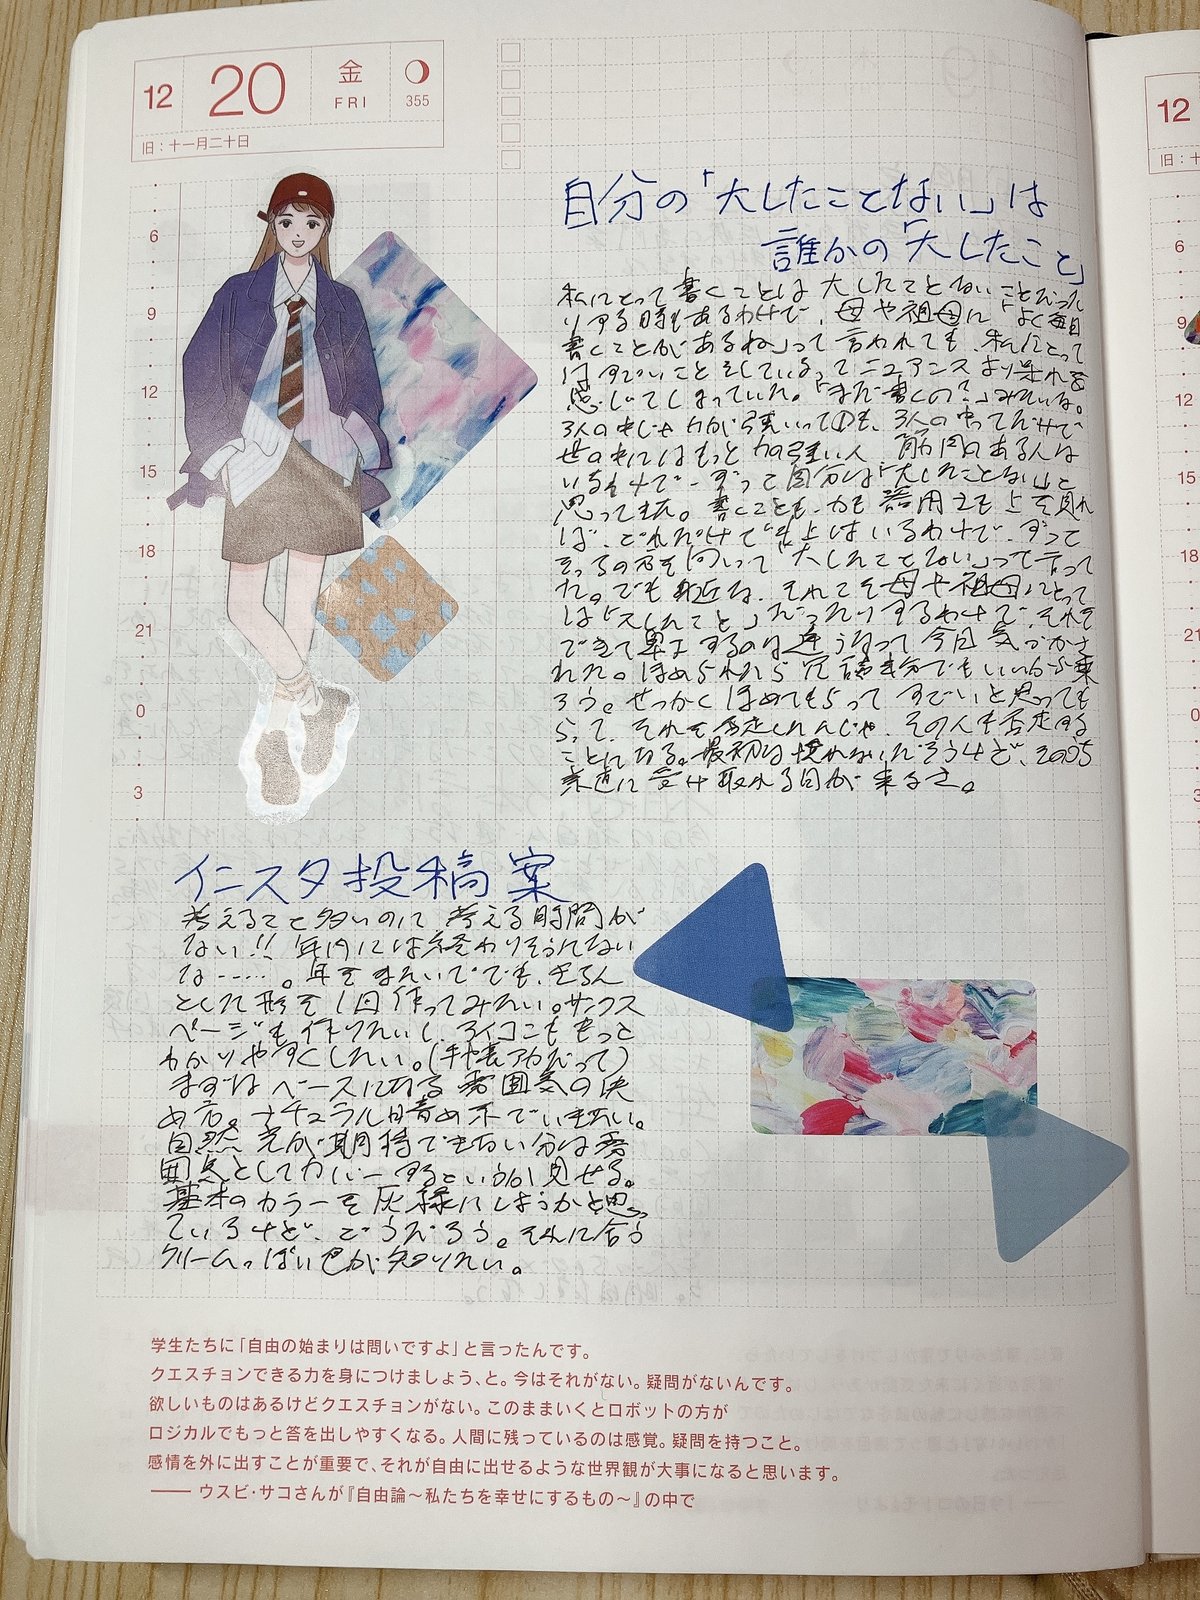 12
20
金
FRI
355
旧：十一月二十日
6
9
12
15
18
21
0
3
自分の「大したことない」は
誰かの「大したこと」
私にとって書くことは大したことないことだった
りする時もあるわけで、母や祖母に「よく毎日
書くことがあるね」って言われても、私にとって
はすごいことをしているってニュアンスより呆れを
感じてしまっていた。「まだ書くの?」みたいな。
3人の中じゃ力が強いってのも、3人の中ってだけで
世の中にはもっと力の強い人、筋肉のある人は
いるわけで、ずっと自分は「大したことない」と
思ってきた。書くことも、力も器用さも上を見れ
ば、どれだけでも上はいるわけで、ずって
そっちの方を向いって「大したことない」って言って
た。でも身近な、それこそ母や祖母にとって
は「大したこと」だったりするわけで、それを
できて卑下するのは違うなって今日気づかさ
れた。ほめられたら冗談半分でもいいから乗
ろう。せっかくほめてもらってすごいと思っても
らって、それを否定したんじゃ、その人も否定する
ことになる。最初は慣れないだろうけど、そのうち
素直に受け取れる日が来るさ。
イニスタ投稿案
考えること多いのに考える時間が
ない!! 年内には終わりそうにない
な……。年をまたいででも、きちん
とした形を1回作ってみたい。サンクス
ページも作りたいし、アイコンももっと
わかりやすくしたい。(手帳アカだって)
まずはベースになる雰囲気の決
め方。ナチュラル目青め系でいきたい。
自然光が期待できない分は雰
囲気としてカバーするというか見せる。
基本のカラーを灰緑にしようかと思っ
ているけど、どうだろう。それに合う
クリームっぽい色が知りたい。
学生たちに「自由の始まりは問いですよ」と言ったんです。
クエスチョンできる力を身につけましょう、と。今はそれがない。疑問がないんです。
欲しいものはあるけどクエスチョンがない。このままいくとロボットの方が
ロジカルでもっと答を出しやすくなる。人間に残っているのは感覚。疑問を持つこと。
感情を外に出すことが重要で、それが自由に出せるような世界観が大事になると思います。
—— ウスビ・サコさんが『自由論〜私たちを幸せにするもの〜』の中で
12
旧：十
6
9
12
15
18
21
0
3